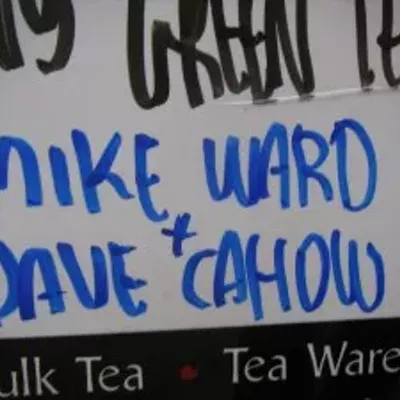 GREEN
MIKE WARD
+
DAVE CAHOW
ulk Tea Tea Ware